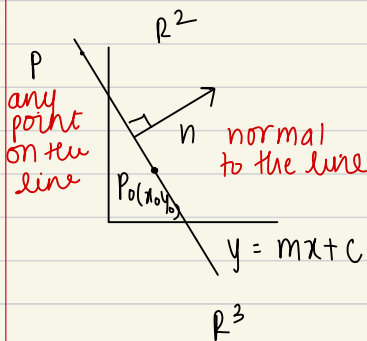 R²
P
any
point
on the
line
n
normal
to the line
P₀(x₀y₀)
y = mx + c
R³